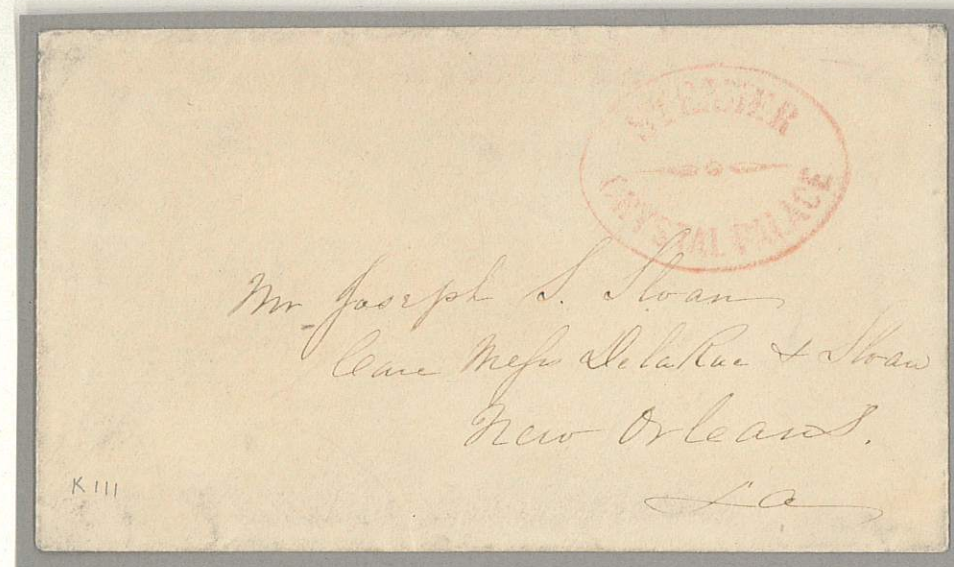 STEAMER
CRYSTAL PALACE
Mr Joseph S. Sloan
Care Messrs DelaRue & Sloan
New Orleans.
La
K 111